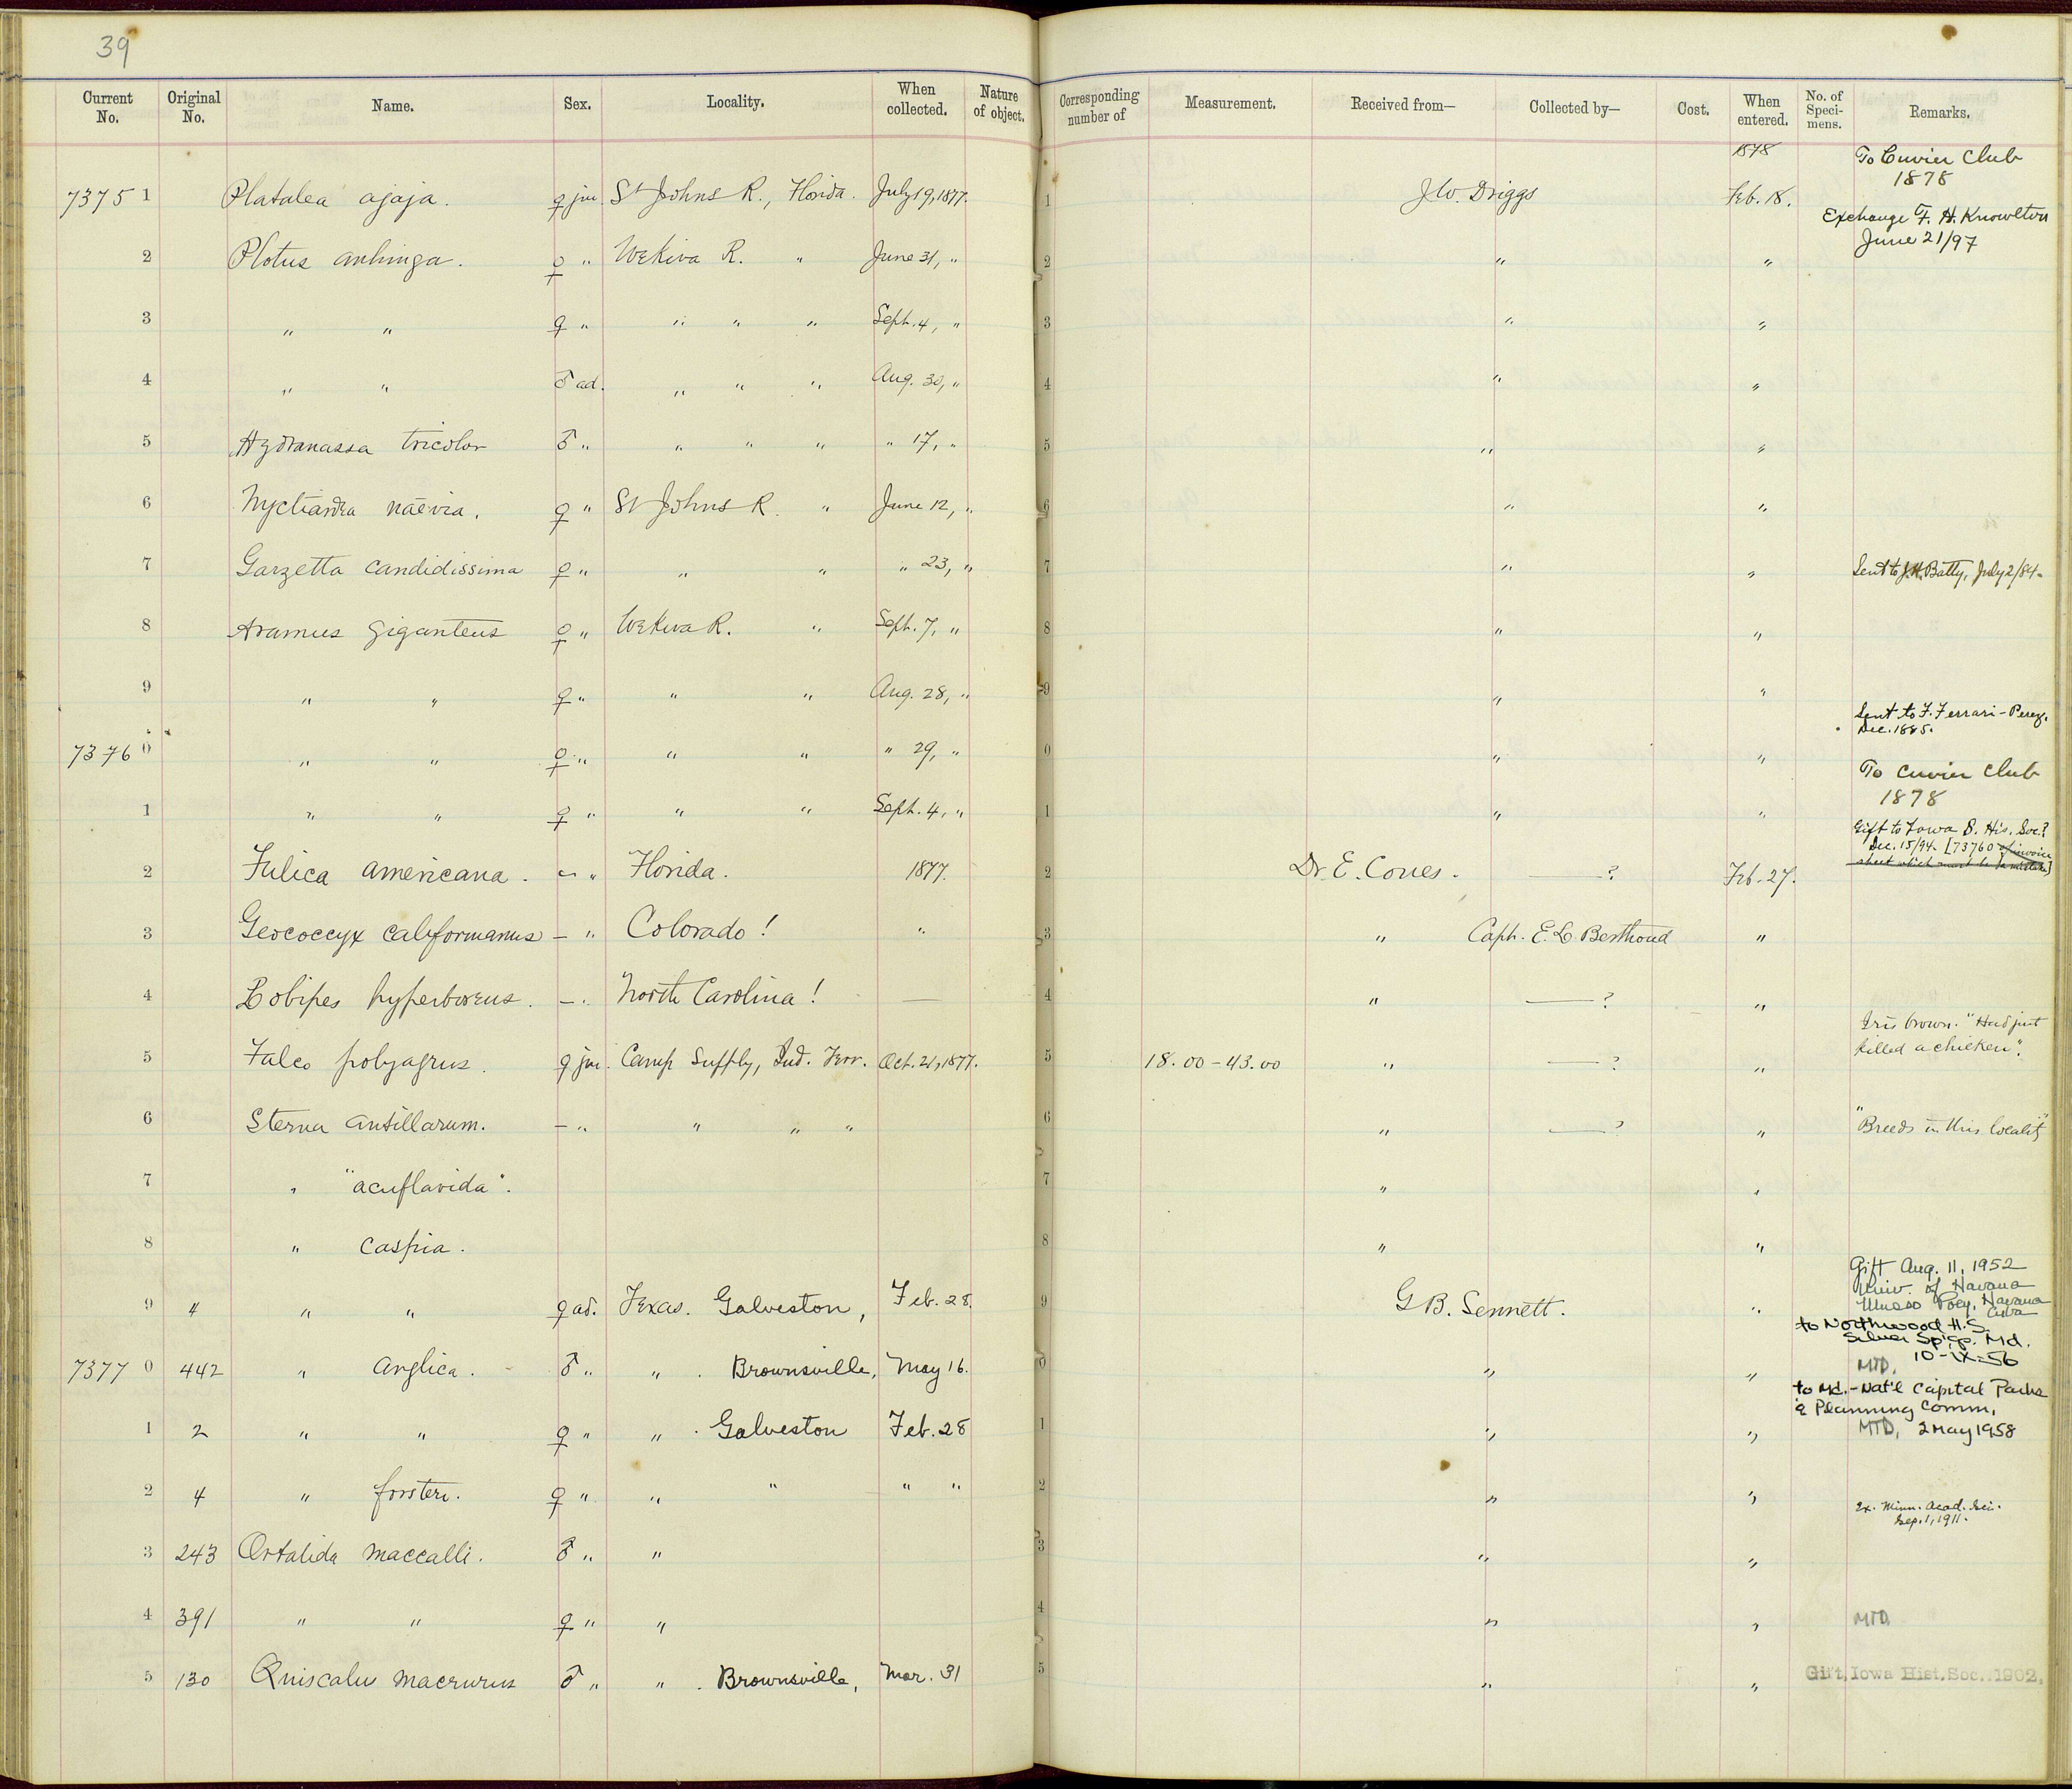 39
Current No. Original No. Name. Sex. Locality. When collected. Nature of object. Corresponding number of Measurement. Received from— Collected by— Cost. When entered. No. of Speci-mens. Remarks.
1878 To Cuvier Club 1878
73751 Platalea ajaja. ♀ juv St Johns R., Florida. July 19, 1877. 1 J.W. Driggs Feb. 18.
Exchange F. H. Knowlton June 21/97
2 Plotus anhinga. ♀ " Wekiva R. " June 31, " 2 " "
3 " " ♀ " " " " Sept. 4, " 3 " "
4 " " ♂ ad. " " " Aug. 30, " 4 " "
5 Hydranassa tricolor ♂ " " " " " 17, " 5 " "
6 Nyctiardea naevia. ♀ " St Johns R. " June 12, " 6 " "
7 Garzetta candidissima ♀ " " " " 23, " 7 " " Sent to J.H. Batty, July 2/84.
8 Aramus giganteus ♀ " Wekiva R. " Sept. 7, " 8 " "
9 " " ♀ " " " Aug. 28, " 9 " "
Sent to F. Ferrari-Perez, Dec. 1885.
73760 " " ♀ " " " " 29, " 0 " "
To Cuvier Club 1878
1 " " ♀ " " " Sept. 4, " 1 " "
Gift to Iowa S. His. Soc.?
Dec. 15/94. [73760 of invoice
sheet which must be a mistake]
2 Fulica americana. – " Florida. 1877. 2 Dr. E. Coues. —? Feb. 27.
3 Geococcyx californianus – " Colorado! " 3 " Capt. E. L. Berthoud "
4 Lobipes hyperboreus. – " North Carolina! — 4 " —? "
Iris brown. "Had just
killed a chicken".
5 Falco polyagrus. ♀ juv. Camp Supply, Ind. Terr. Oct. 21, 1877. 5 18.00–43.00 " —? "
6 Sterna antillarum. – " " " " 6 " —? " "Breeds in this locality"
7 " "acuflavida". 7 " "
8 " caspia. 8 " "
Gift Aug. 11, 1952
Univ. of Havana
Museo Poey, Havana
Cuba
9 4 " " ♀ ad. Texas. Galveston, Feb. 28. 9 G. B. Sennett. "
to Northwood H.S.
Silver Sp'gs. Md.
10-IX-56
73770 442 " Anglica. ♂ " " . Brownsville, May 16. 0 " " MTD.
to Md.-Nat'l Capital Parks
& Planning Comm.
1 2 " " ♀ " " . Galveston Feb. 28 1 " " MTD, 2 May 1958
2 4 " forsteri. ♀ " " " " " 2 " "
Ex. Minn. Acad. Sci.
Sep. 1, 1911.
3 243 Ortalida maccalli. ♂ " " 3 " "
4 391 " " ♀ " " 4 " " MTD.
5 130 Quiscalus macrurus ♂ " " . Brownsville, Mar. 31 5 " " Gift, Iowa Hist. Soc. 1902.